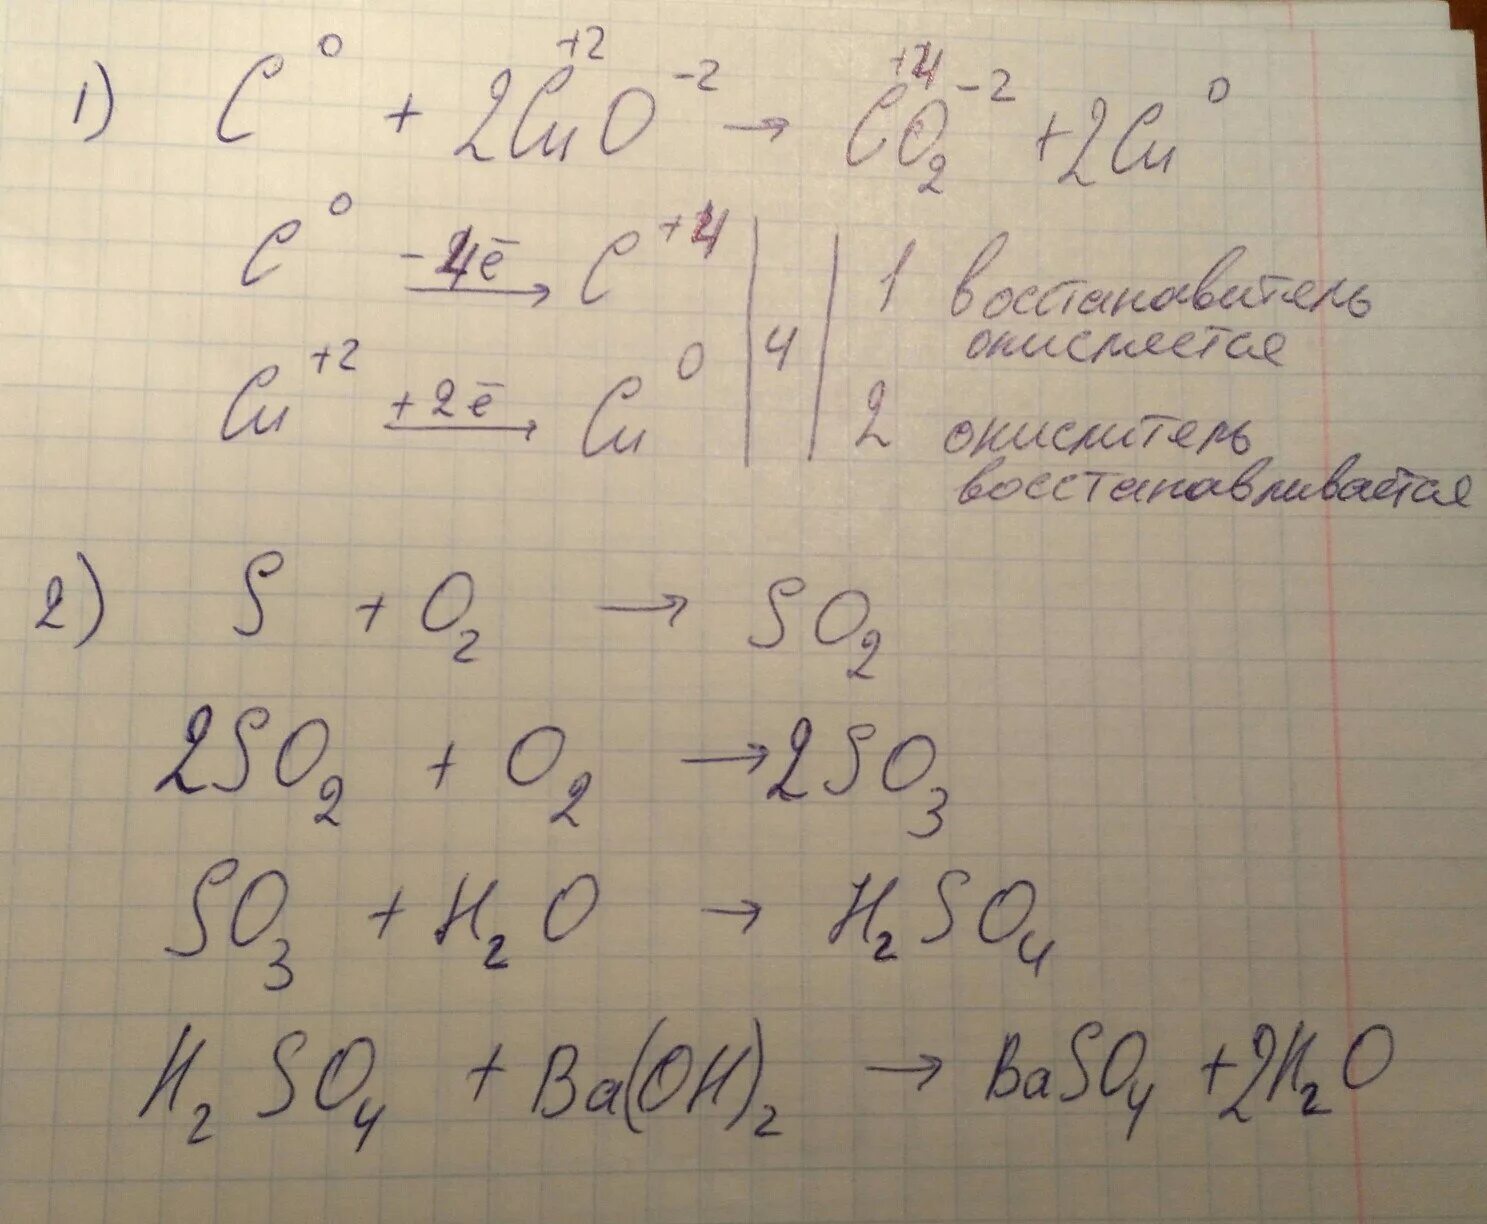 1) C⁰ + 2Cu⁺²O⁻² → C⁺⁴O₂⁻² + 2Cu⁰
C⁰ -4ē → C⁺⁴ | | 1 восстановитель
окисляется
4
Cu⁺² +2ē → Cu⁰ | | 2 окислитель
восстанавливается
2) S + O₂ → SO₂
2SO₂ + O₂ → 2SO₃
SO₃ + H₂O → H₂SO₄
H₂SO₄ + Ba(OH)₂ → BaSO₄ + 2H₂O